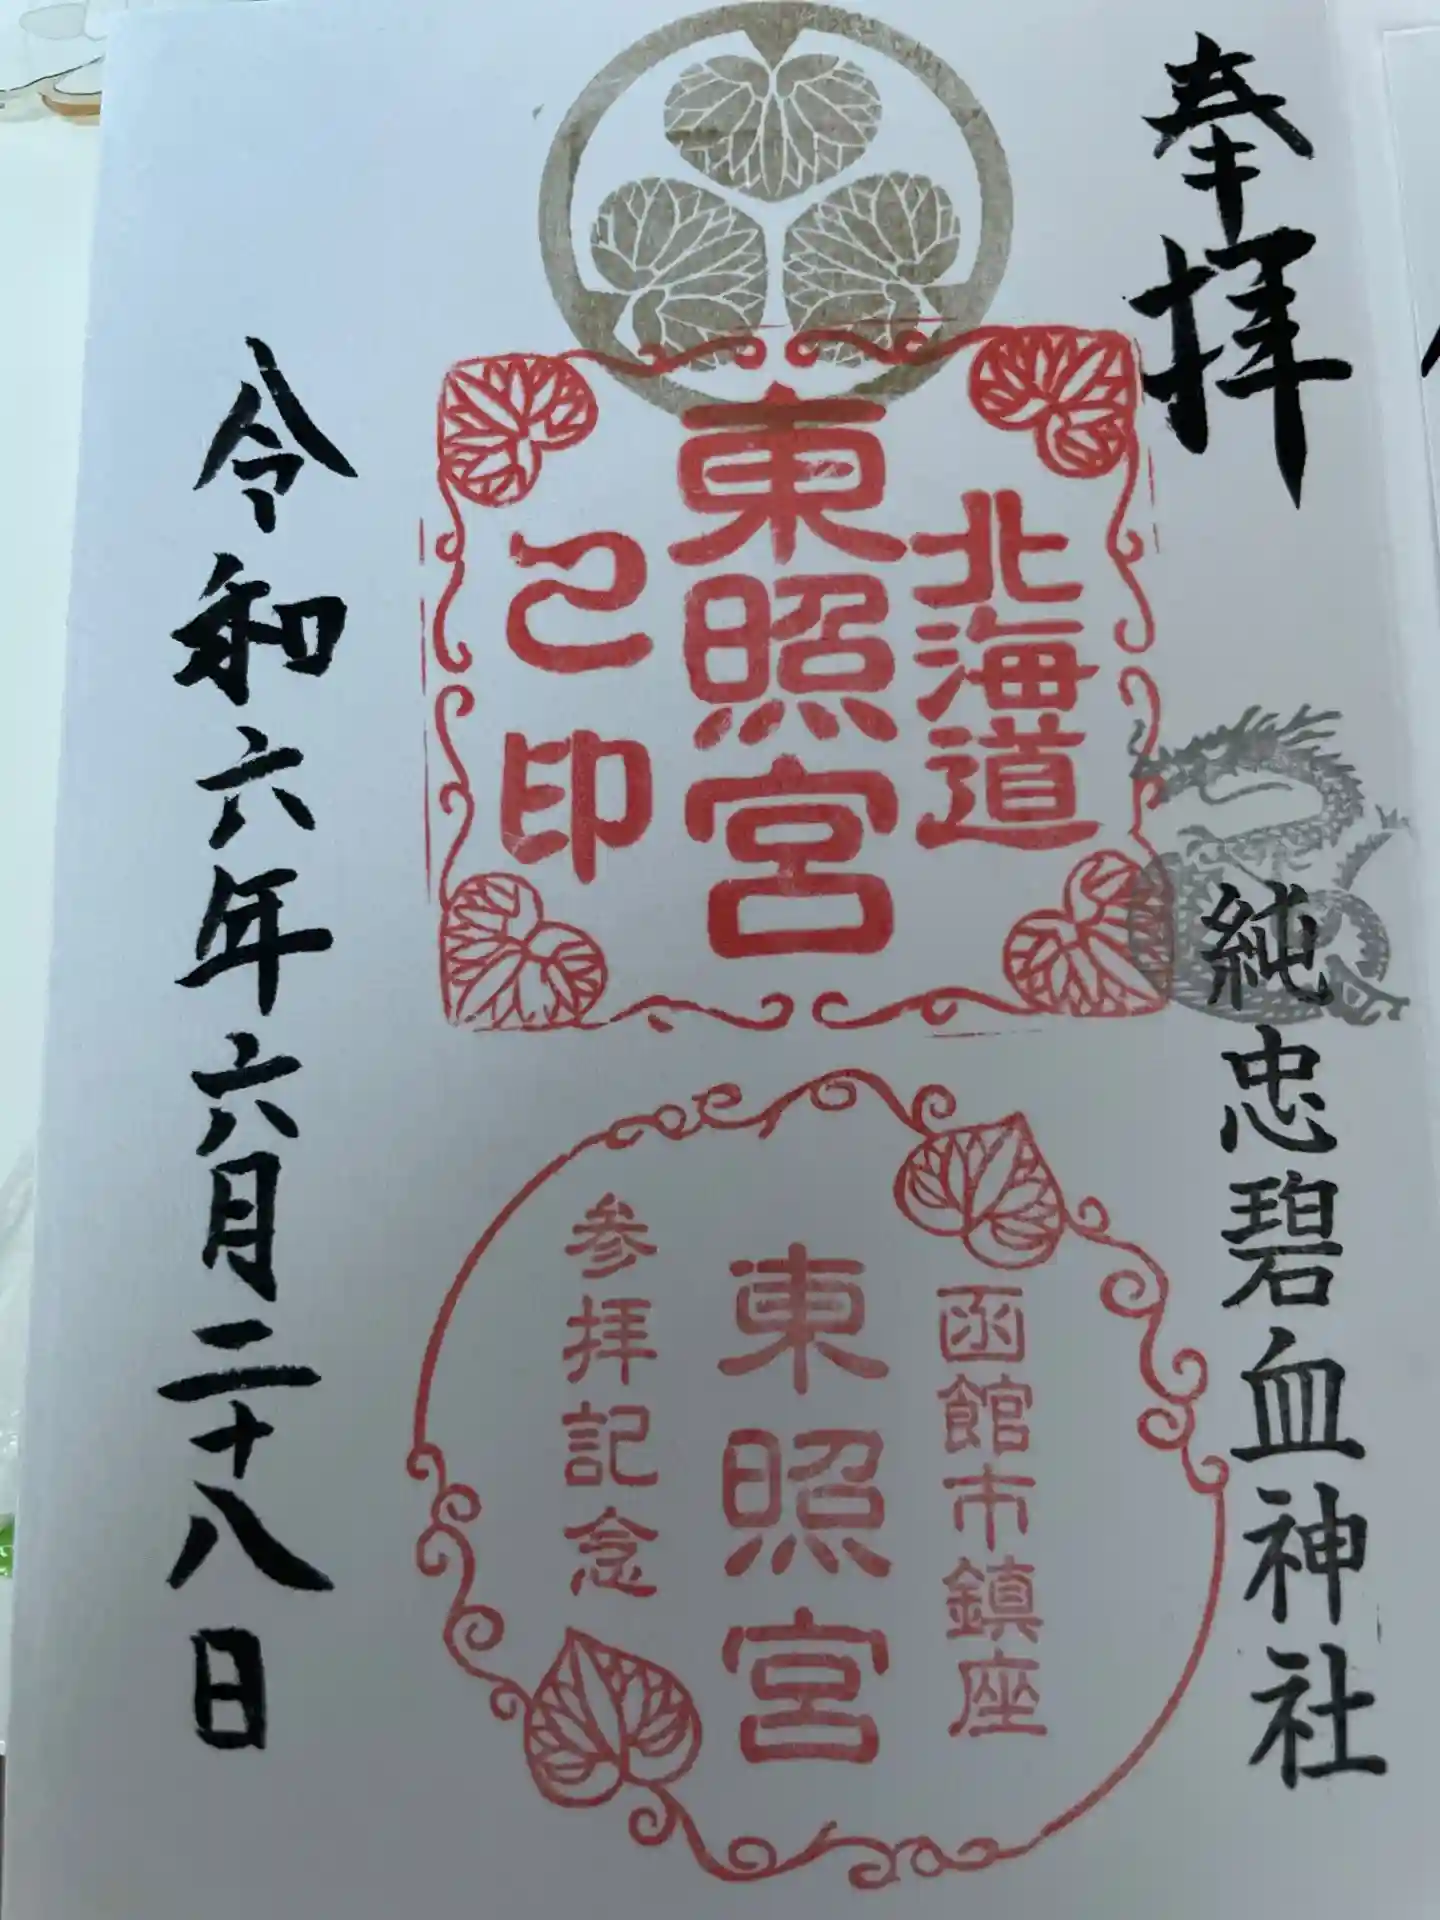 奉拝
純忠碧血神社
北海道
東照宮
己印
函館市鎮座
東照宮
参拝記念
令和六年六月二十八日